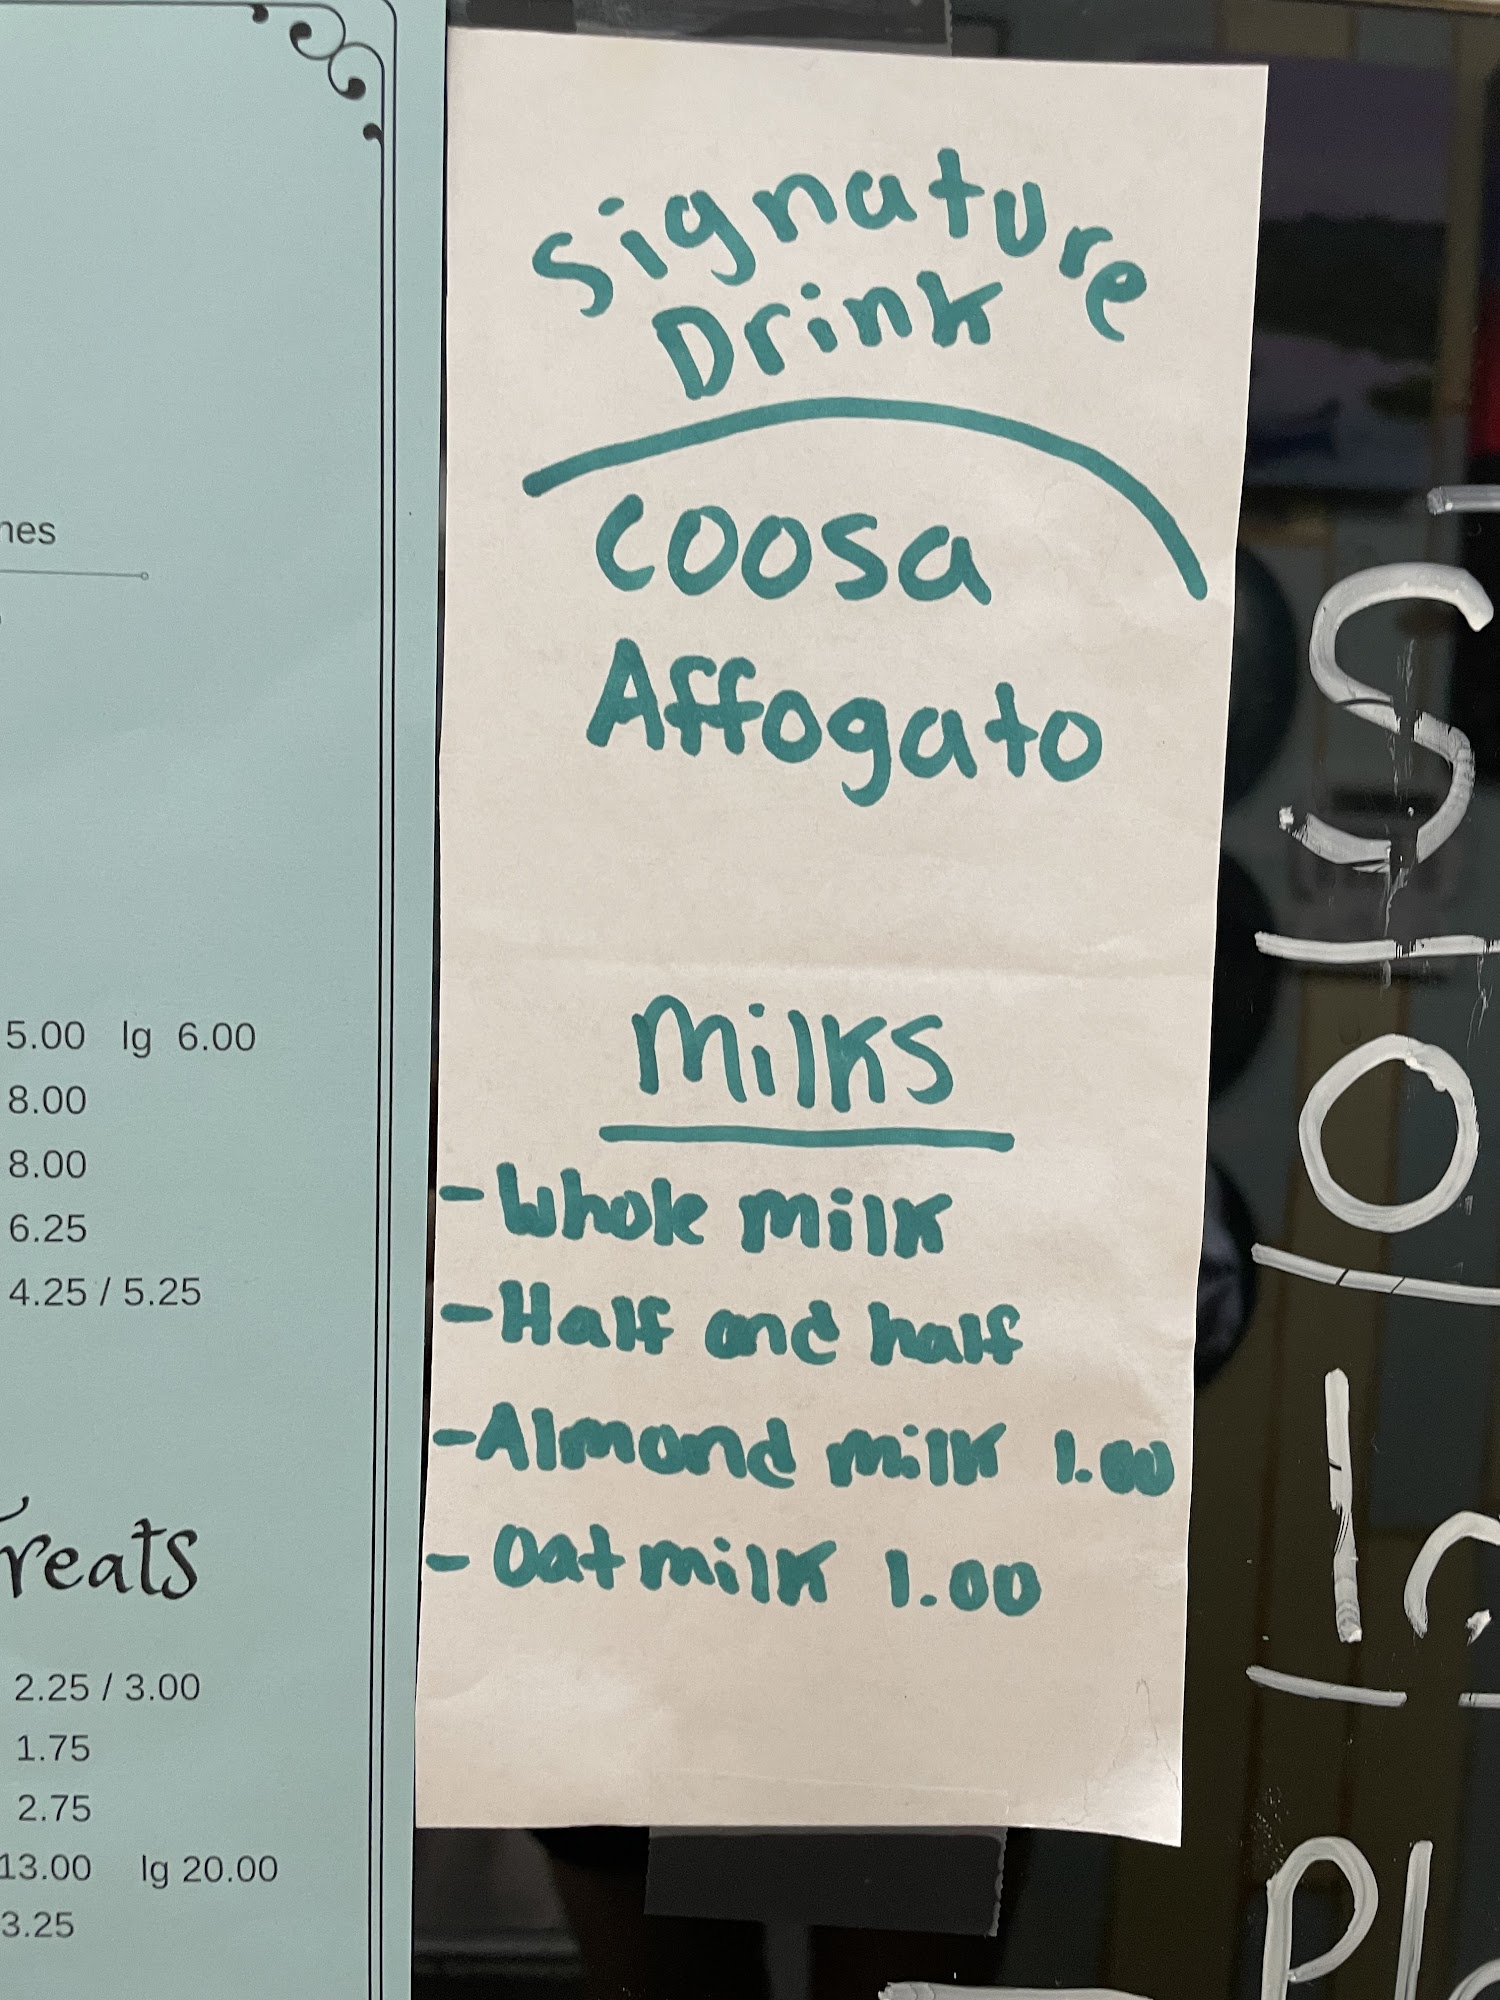 5.00 lg 6.00
8.00
8.00
6.25
4.25 / 5.25
2.25 / 3.00
1.75
2.75
13.00 lg 20.00
3.25
Signature
Drink
Coosa
Affogato
Milks
- Whole milk
- Half and half
- Almond milk 1.00
- Oat milk 1.00